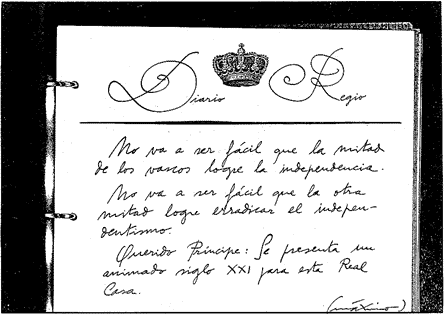 Diario Regio
No va a ser fácil que la mitad
de los vascos logre la independencia.
No va a ser fácil que la otra
mitad logre erradicar el indepen-
dentismo.
Querido Príncipe: Se presenta un
animado siglo XXI para esta Real
Casa.
(máximo)